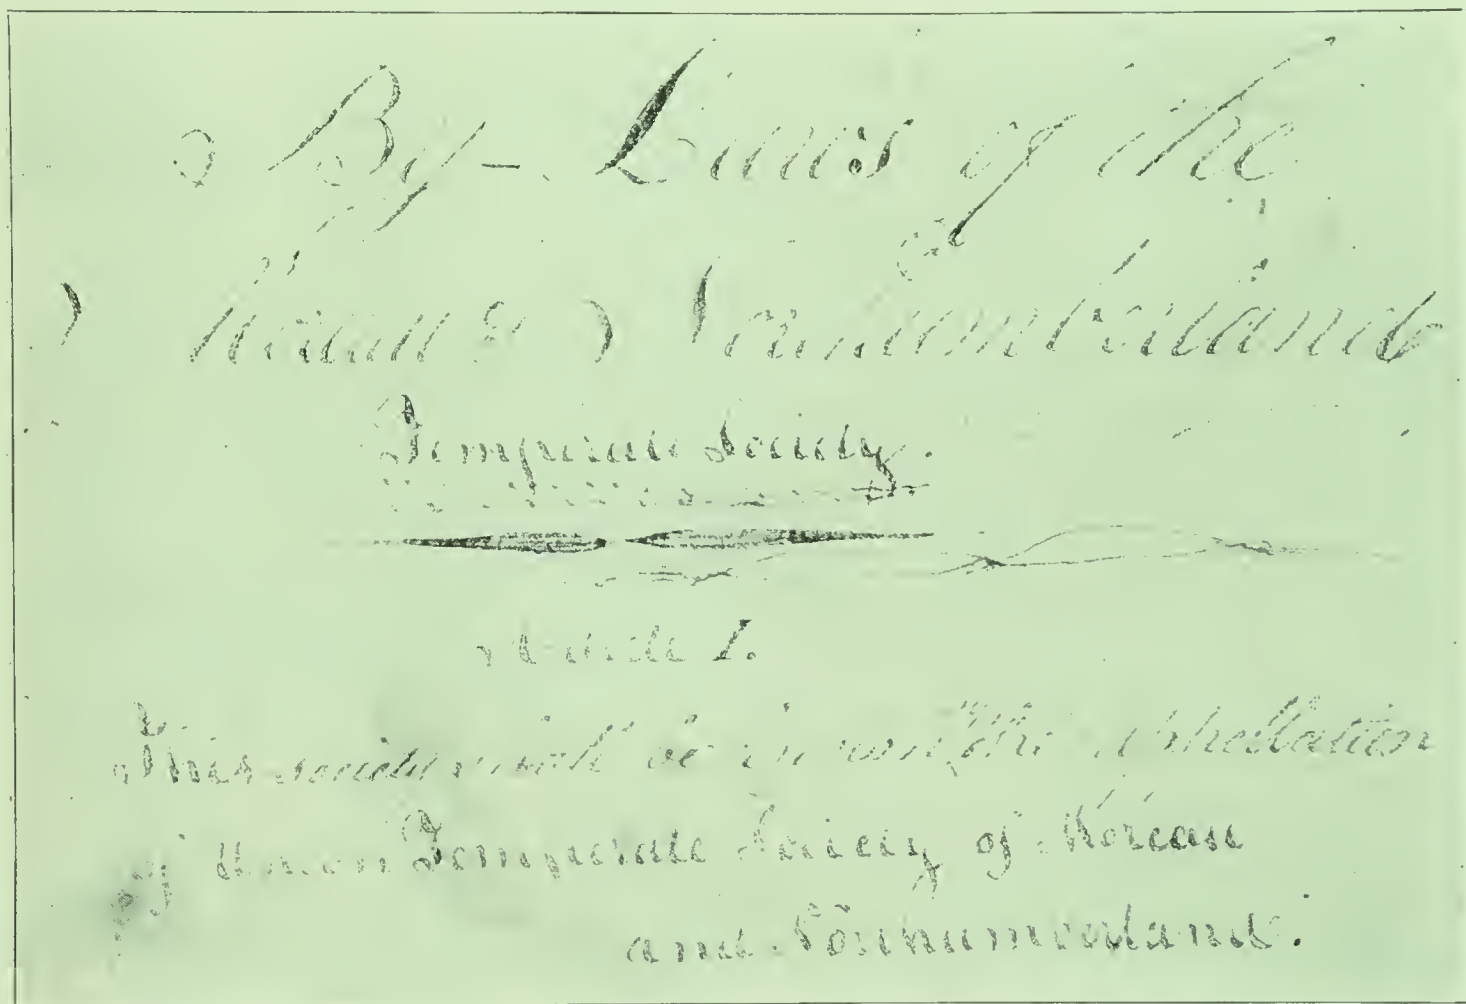 By-Laws of the
Moreau & Northumberland
Temperate Society.
Article I.
This society shall be the appellation
of Union Temperate Society of Moreau
and Northumberland.